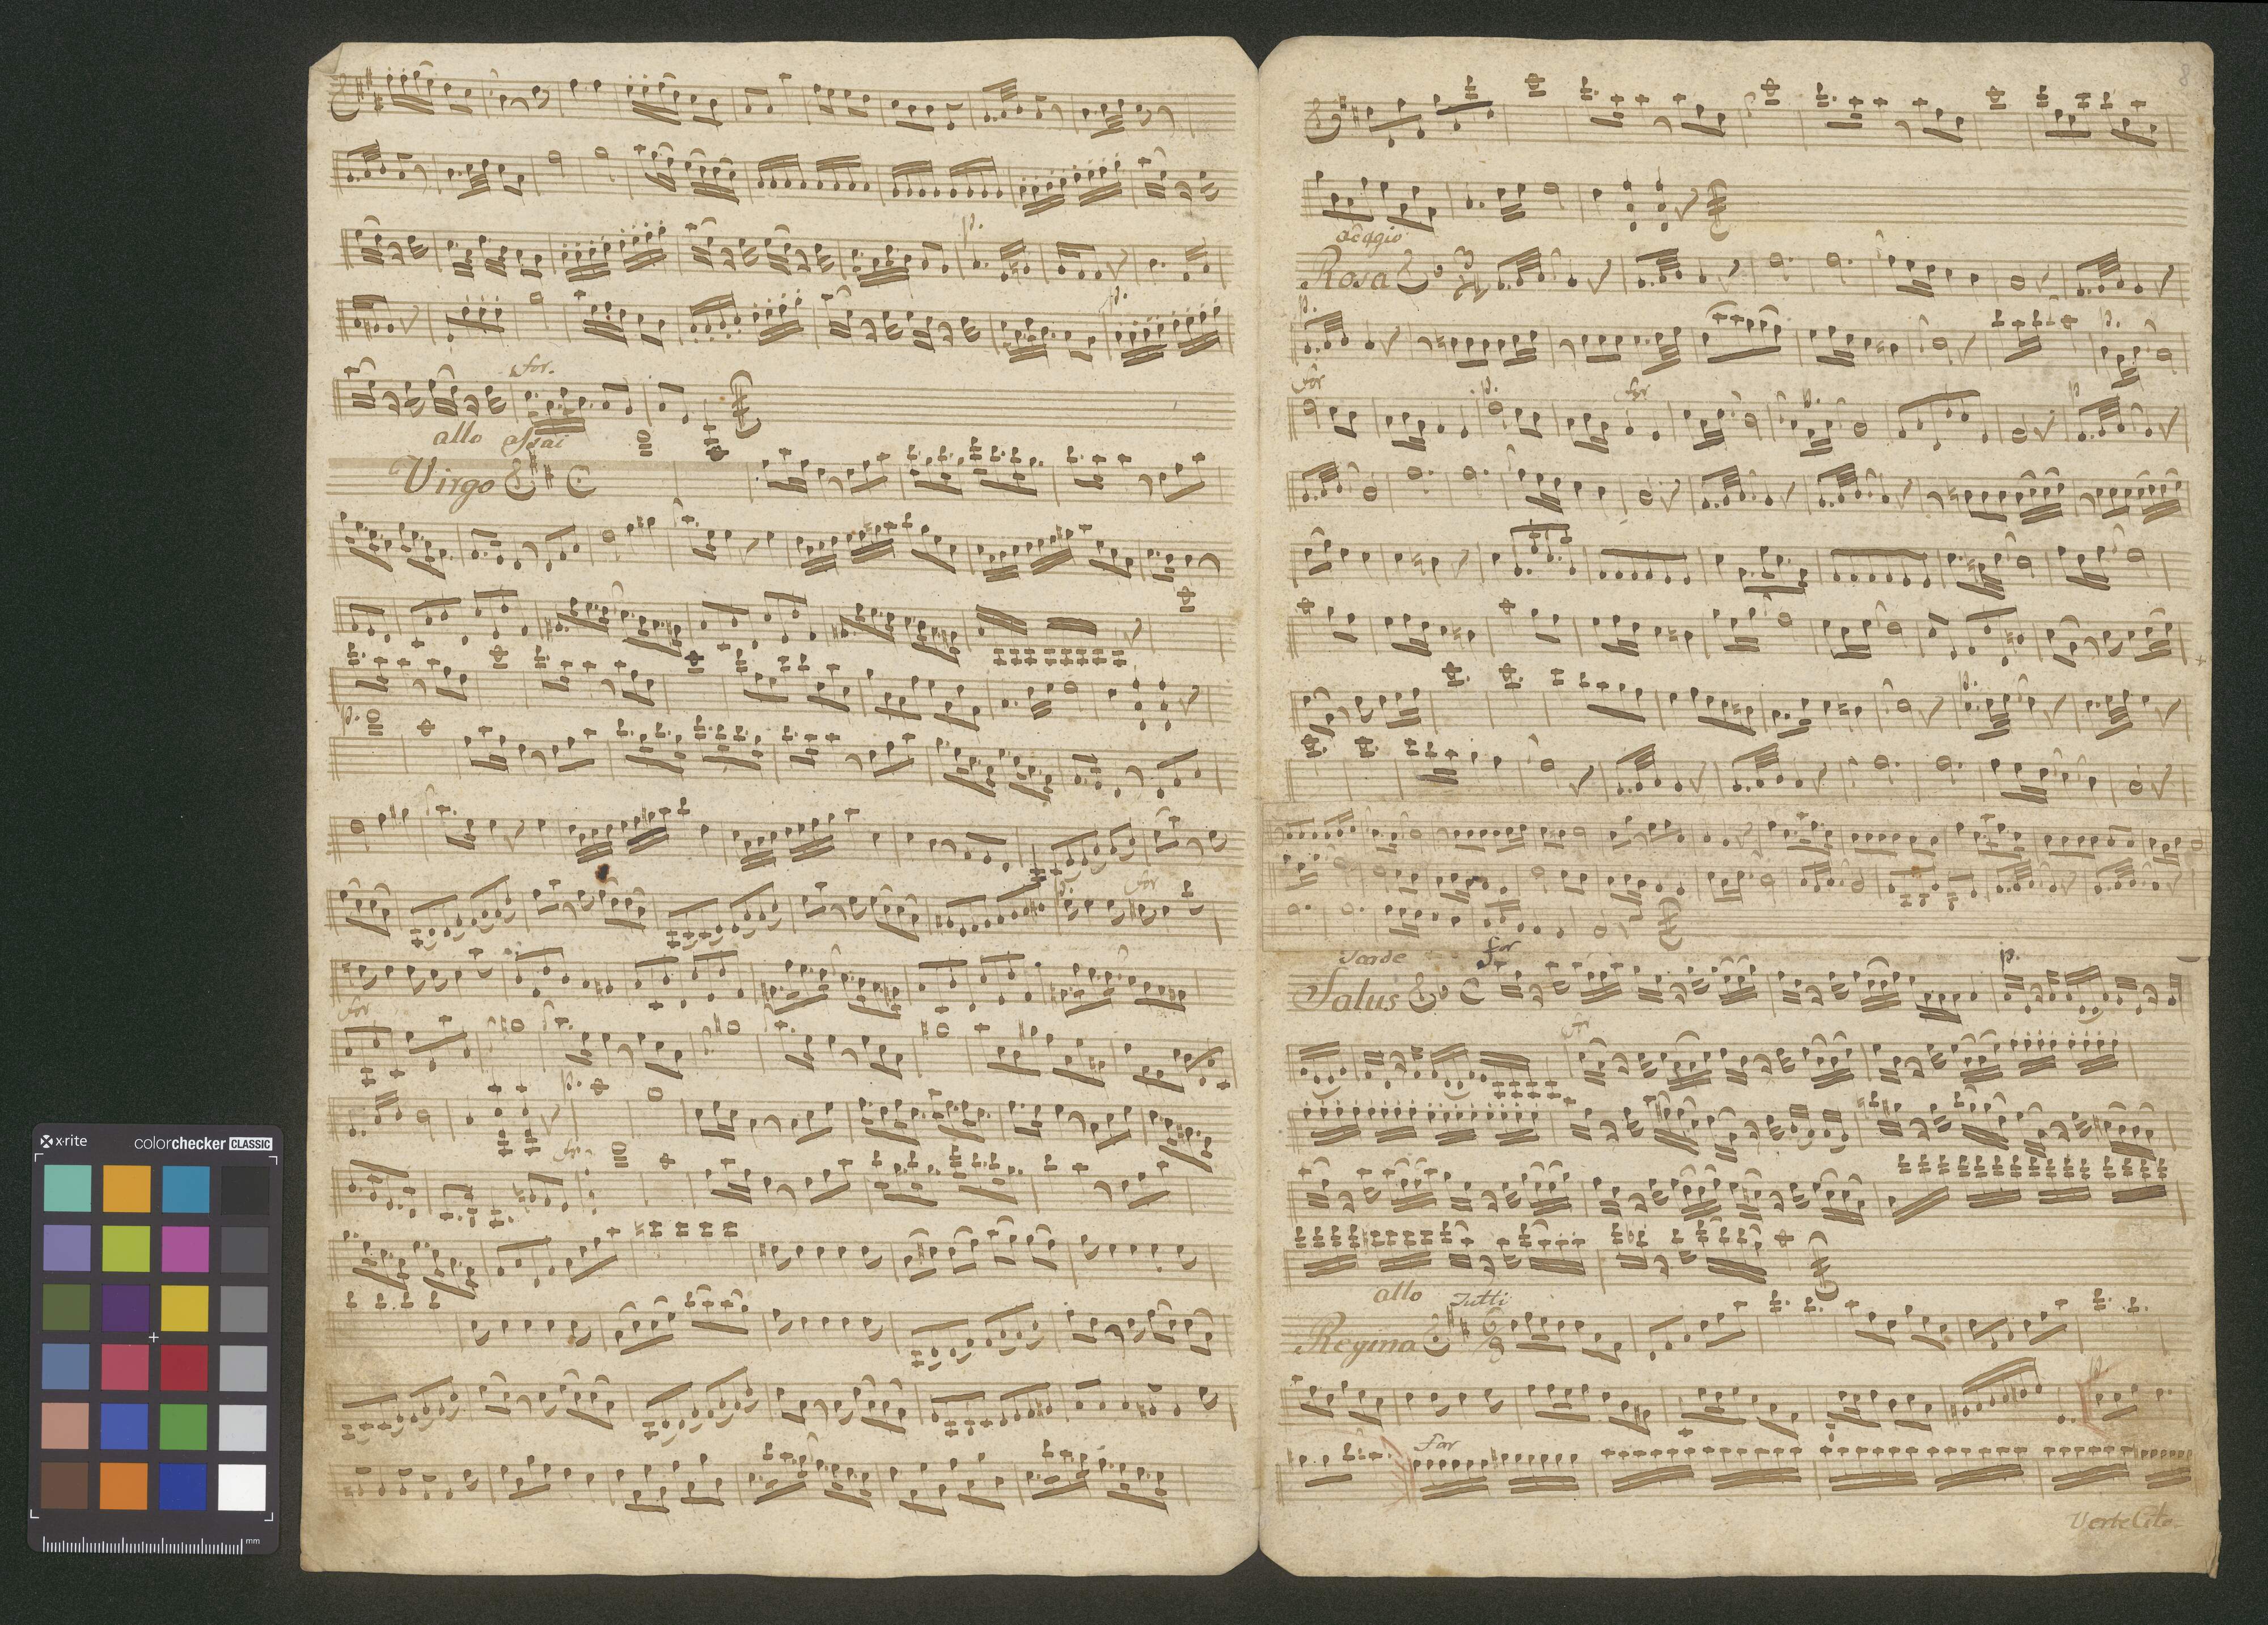 p.
p.
for.
allo assai
Virgo
p.
for
for
p.
for
8
adagio
Rosa 3
p.
p.
for
p.
for
p.
p
p.
Tarde
for
Salus
p.
for
allo
Tutti
Regina 6
8
p.
for
Verte Cito
x-rite
colorchecker CLASSIC
mm